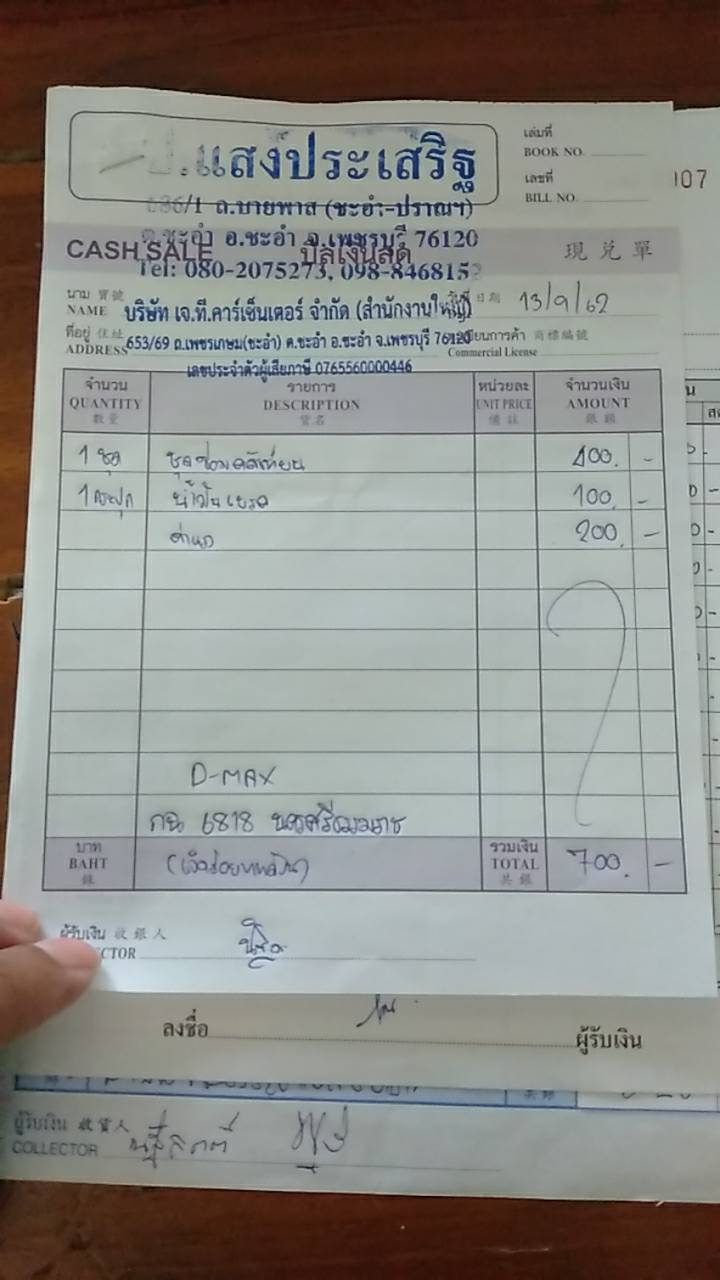 แสงประเสริฐ
เล่มที่
BOOK NO.
เลขที่
BILL NO.
007
/1 ถ.บายพาส (ชะอำ-ปราณฯ)
ต.ชะอำ อ.ชะอำ จ.เพชรบุรี 76120
CASH SALE บิลเงินสด 現兌單
Tel: 080-2075273, 098-846815
นาม 寶號 วันที่ 日期 13/9/62
NAME บริษัท เจ.ที.คาร์เซ็นเตอร์ จำกัด (สำนักงานใหญ่)
ที่อยู่ 住址 ทะเบียนการค้า 商標編號
ADDRESS 653/69 ถ.เพชรเกษม(ชะอำ) ต.ชะอำ อ.ชะอำ จ.เพชรบุรี 76120 Commercial License
เลขประจำตัวผู้เสียภาษี 0765560000446
จำนวน รายการ หน่วยละ จำนวนเงิน
QUANTITY DESCRIPTION UNIT PRICE AMOUNT
數量 貨名 備註 銀額
1 ชุด ชุดซ่อม 400. -
1 กระปุก น้ำมันเบรค 100. -
ค่าแรง 200. -
D-MAX
6818 นครศรีธรรมราช
บาท รวมเงิน
BAHT (เจ็ดร้อยบาทถ้วน) TOTAL 700. -
銖 共銀
ผู้รับเงิน 收銀人
CTOR
ลงชื่อ ผู้รับเงิน
ผู้รับเงิน 收貨人
COLLECTOR